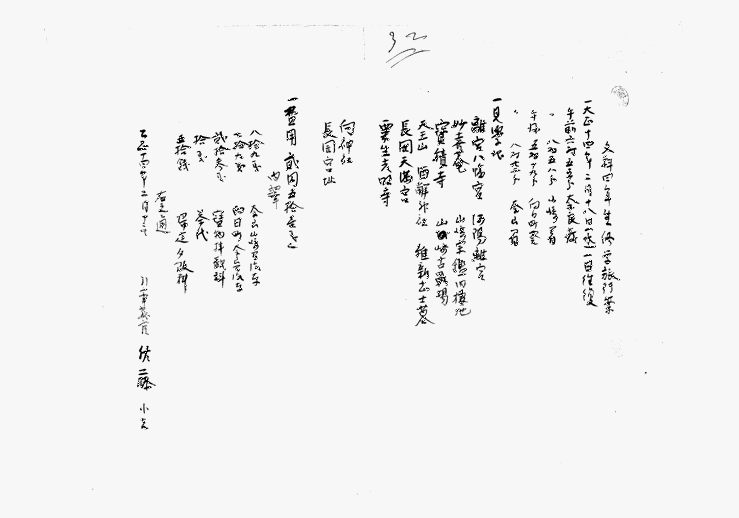 32
文科四年生修学旅行案
一大正十四年二月十八日(水)一日往復
午前六時五五分奈良発
〃 八時五八分山崎着
午後五時十九分向日町発
〃 八時 分奈良着
一見学地
離宮八幡宮 河陽離宮
妙喜菴 山崎宗鑑旧棲地
宝積寺 山崎古戦場
天王山 酒解神社 維新志士墓
長岡天満宮
粟生光明寺
向神社
長岡宮址
一費用 貳円五拾
内訳
八拾九銭 奈良山崎間汽車
七拾九銭 向日町奈良汽車
貳拾参銭 宝物拝観料
拾銭 茶代
五拾銭
右之通
大正十四年二月十 日
引率教官 佐藤小吉